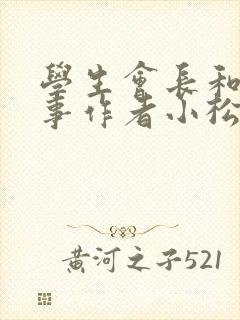 學生會長和
事作者小松
黄河之子521